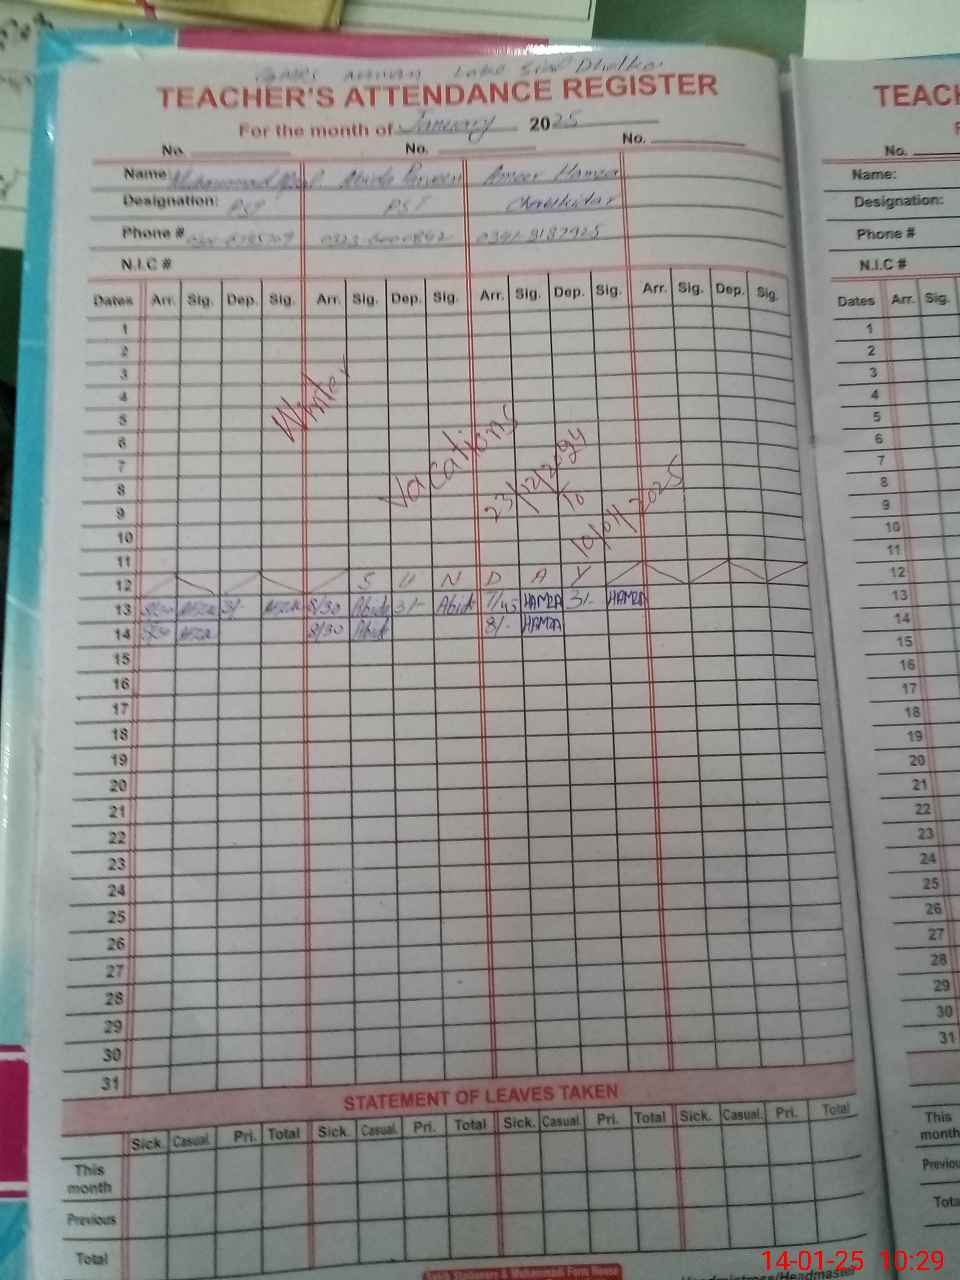 TEACHER'S ATTENDANCE REGISTER
For the month of January 2025
No. No. No.
Name Muhammad Abida Parveen Ameer Hamza
Designation: PST PST Chowkidar
Phone #
N.I.C #
Dates Arr. Sig. Dep. Sig. Arr. Sig. Dep. Sig. Arr. Sig. Dep. Sig. Arr. Sig. Dep. Sig.
1
2
3
4
5
6
7
8
9
10
11
Winter
Vacations
23/12/2024
To
10/01/2025
12 S U N D A Y
13 8/30 3/- 8/30 Abida 3/- Abida 7/45 HAMZA 3/- HAMZA
14 8/30 8/30 Abida 8/- HAMZA
15
16
17
18
19
20
21
22
23
24
25
26
27
28
29
30
31
STATEMENT OF LEAVES TAKEN
Sick. Casual. Pri. Total Sick. Casual. Pri. Total Sick. Casual. Pri. Total Sick. Casual. Pri. Total
This
month
Previous
Total
TEACH
No.
Name:
Designation:
Phone #
N.I.C #
Dates Arr. Sig.
1
2
3
4
5
6
7
8
9
10
11
12
13
14
15
16
17
18
19
20
21
22
23
24
25
26
27
28
29
30
31
This
month
Previou
Tota
14-01-25 10:29